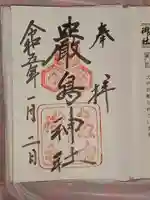 奉拝
嚴島神社
令和五年一月二日